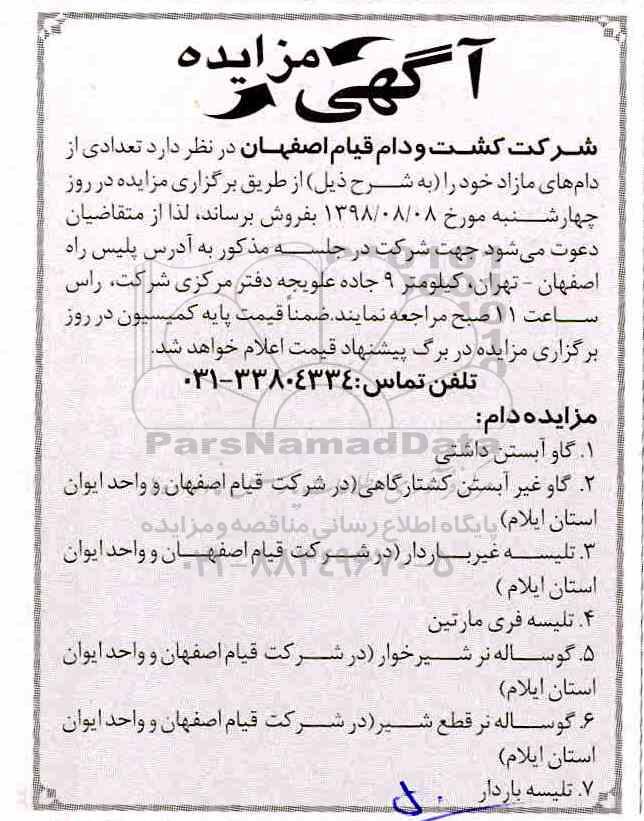 آگهی مزایده
شرکت کشت و دام قیام اصفهان در نظر دارد تعدادی از
دام‌های مازاد خود را (به شرح ذیل) از طریق برگزاری مزایده در روز
چهارشنبه مورخ ۱۳۹۸/۰۸/۰۸ بفروش برساند، لذا از متقاضیان
دعوت می‌شود جهت شرکت در جلسه مذکور به آدرس پلیس راه
اصفهان - تهران، کیلومتر ۹ جاده علویجه دفتر مرکزی شرکت، راس
ساعت ۱۱ صبح مراجعه نمایند. ضمناً قیمت پایه کمیسیون در روز
برگزاری مزایده در برگ پیشنهاد قیمت اعلام خواهد شد.
تلفن تماس: ۳۳۸۰۴۳۳۴-۰۳۱
مزایده دام:
۱. گاو آبستن داشتی
ParsNamadData
۲. گاو غیر آبستن کشتارگاهی (در شرکت قیام اصفهان و واحد ایوان
استان ایلام)
پایگاه اطلاع رسانی مناقصه و مزایده
۳. تلیسه غیرباردار (در شرکت قیام اصفهان و واحد ایوان
۰۲۱-۸۸۳۴۹۶۷۰-۵
استان ایلام )
۴. تلیسه فری مارتین
۵. گوساله نر شیرخوار (در شرکت قیام اصفهان و واحد ایوان
استان ایلام)
۶. گوساله نر قطع شیر (در شرکت قیام اصفهان و واحد ایوان
استان ایلام)
۷. تلیسه باردار